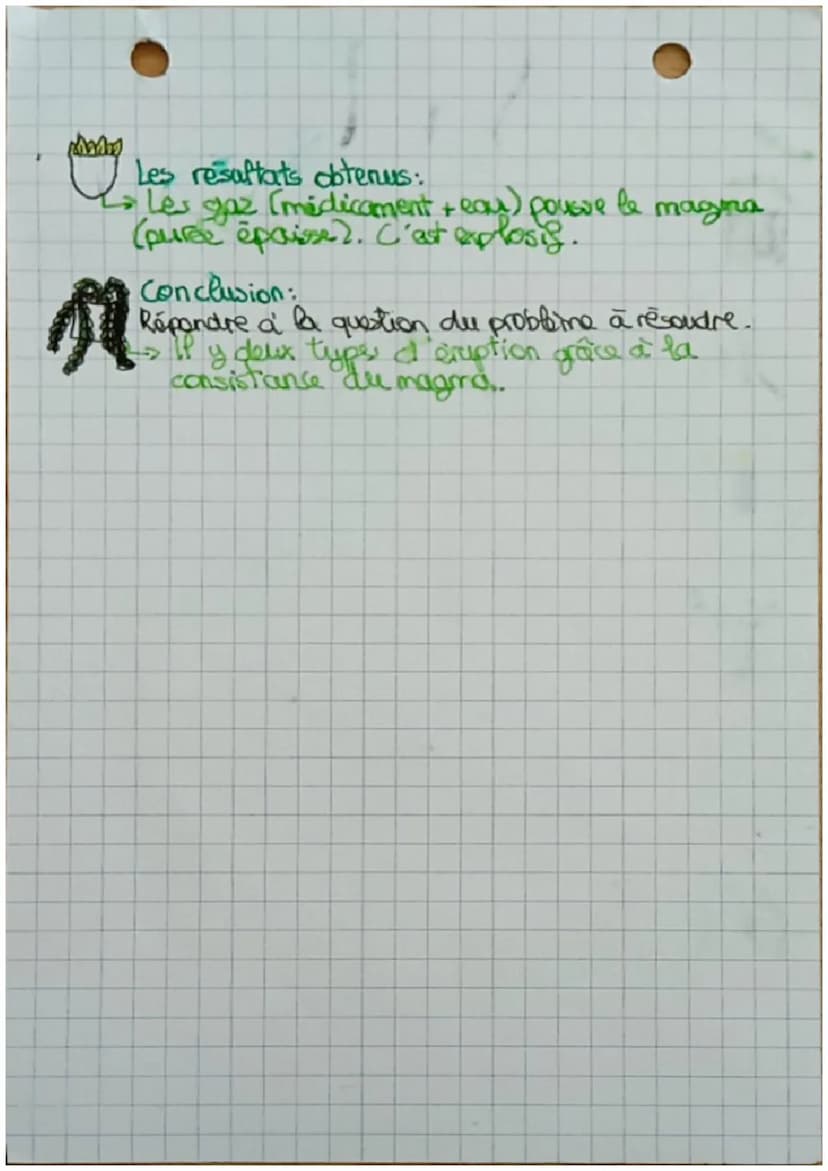 Les résultats obtenus:
↳ Les gaz (médicament + eau) pousse le magma
(purée épaisse). C'est explosif.
Conclusion:
Répondre à la question du problème à résoudre.
↳ Il y deux types d'éruption grâce à la
consistance du magma.